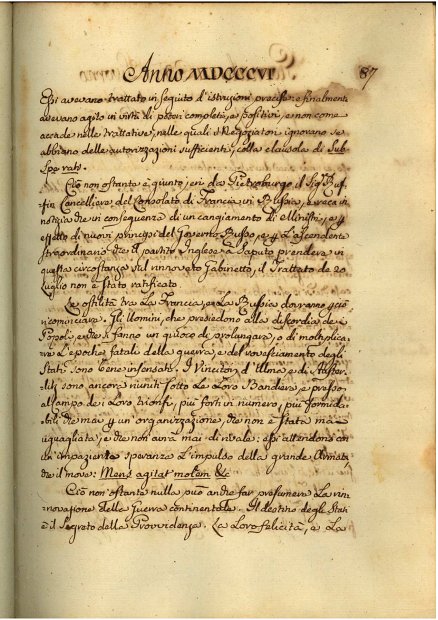 Anno MDCCCVI
87
Essi avevano trattato in seguito d'istruzioni precise: e finalmente
avevano agito in virtù di poteri completi, e positivi, e non come
accade nelle trattative, nelle quali i Negoziatori ignorano se
abbiano delle autorizzazioni sufficienti, colla clausola di Sub-
Spe rati.
Ciò non ostante è giunto, eri da Pietroburgo il Sig.r Ruf-
fin Cancelliere del Consolato di Francia in Russia, e reca in
notizia che in conseguenza di un cangiamento di Ministri, e p
effetto di nuovi principj del Governo Russo, e p l'ascendente
straordinario che il partito Inglese à saputo prendere in
questa circostanza sul rinnovato Gabinetto, il Trattato de 20
luglio non è stato ratificato.
Le ostilità tra la Francia, e la Russia dovranno
ricominciare. Gli Uomini, che presiedono alla discordia de
Popoli, e che si fanno un giuoco di prolungare, o di moltiplica-
re l'epoche fatali della guerra, e del rovesciamento degli
Stati sono bene insensati. I Vincitori d'Ulma, e di Auster-
litz sono ancora riuniti sotto le loro Bandiere, e presso
al campo de i loro trionfi, più forti in numero, più formida-
bili che mai p un organizzazione, che non è stata mai
uguagliata, e che non avrà mai di rivale: essi attendono con
un impaziente speranza l'impulso della grande Anima,
che il move: Mens agitat molem &c
Ciò non ostante nulla può anche far presumere la rin-
novazione della Guerra continentale. Il destino degli Stati
è il Segreto della Provvidenza. La loro felicità, e la